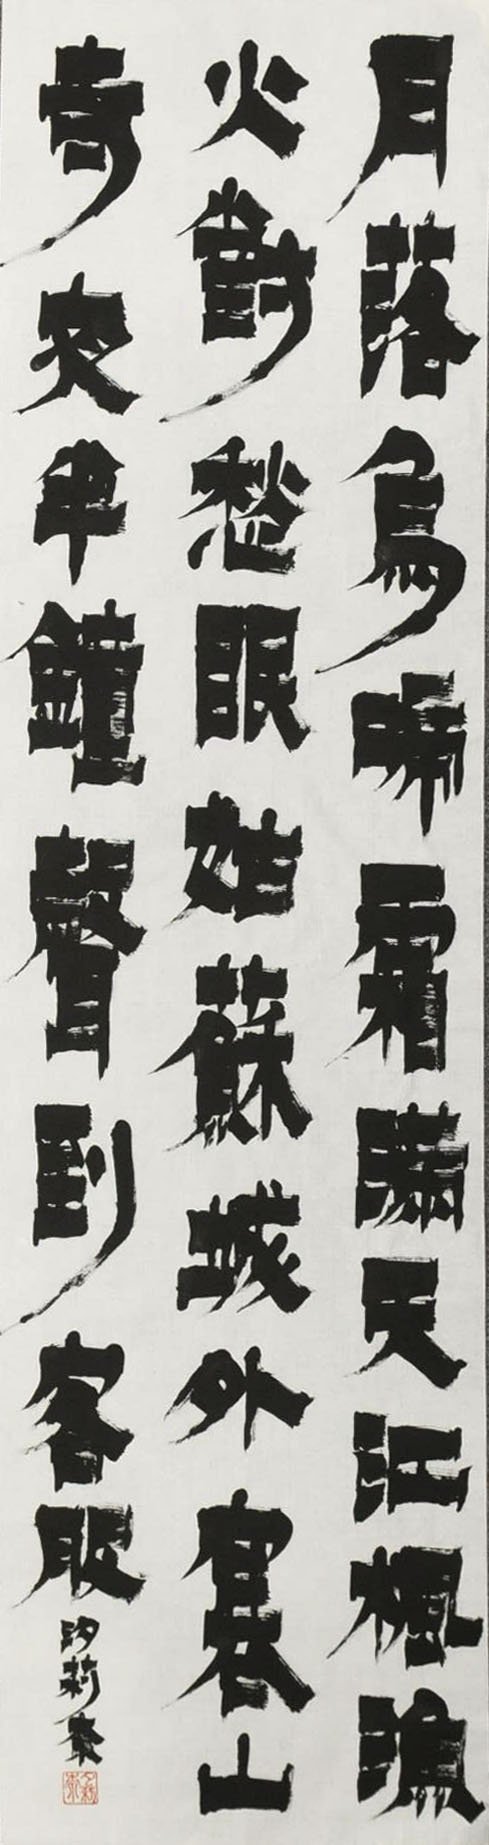 月落烏啼霜滿天江楓漁
火對愁眠姑蘇城外寒山
寺夜半鐘聲到客船
汐莉